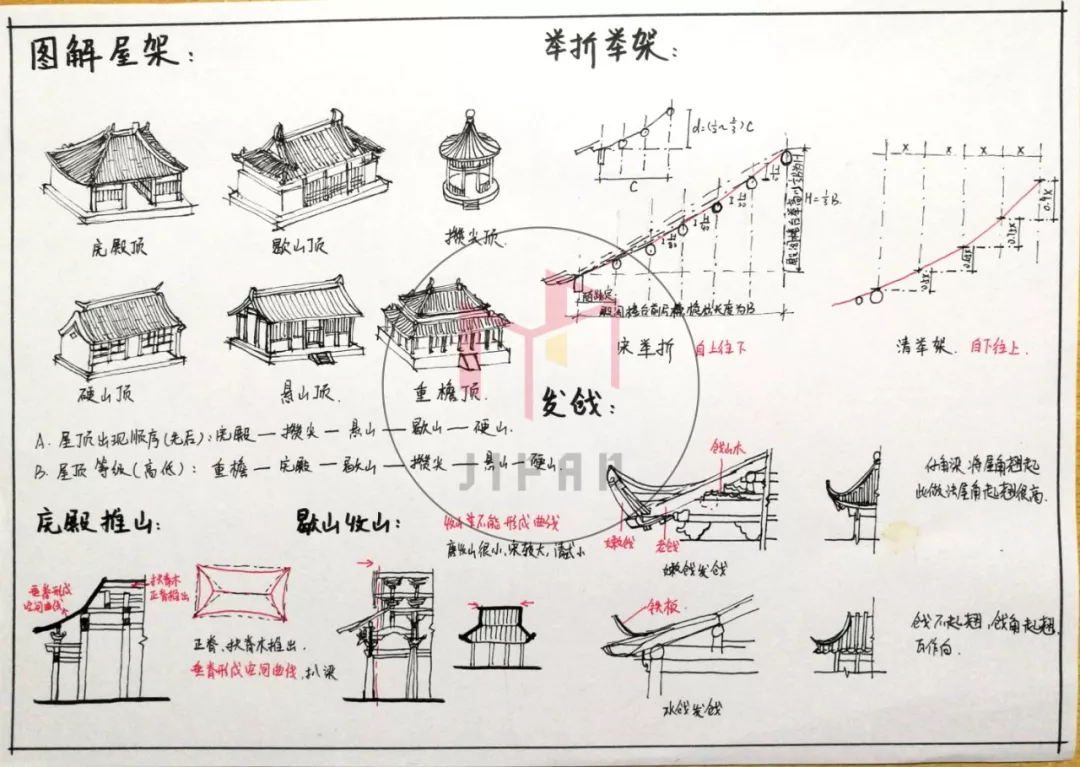 图解屋架：
举折举架：
庑殿顶
歇山顶
攒尖顶.
硬山顶
悬山顶.
重檐顶.
A. 屋顶出现顺序(先后)：庑殿—攒尖—悬山—歇山—硬山.
B. 屋顶等级(高低)： 重檐—庑殿—歇山—攒尖—悬山—硬山.
C
H=
B.
宋举折 自上往下
X
X
X
X
清举架. 自下往上.
JIPAN
发戗：
戗山木
嫩戗
老戗
嫩戗发戗
仔角梁,将屋角翘起
此做法屋角起翘很高.
铁板.
水戗发戗
戗不起翘,戗角起翘
瓦作向.
庑殿推山：
垂脊形成
空间曲线
扶脊木
正脊推出
正脊、扶脊木推出.
垂脊形成空间曲线,扒梁
歇山收山：
收山不能形成曲线
唐收山很小,宋较大,清式小